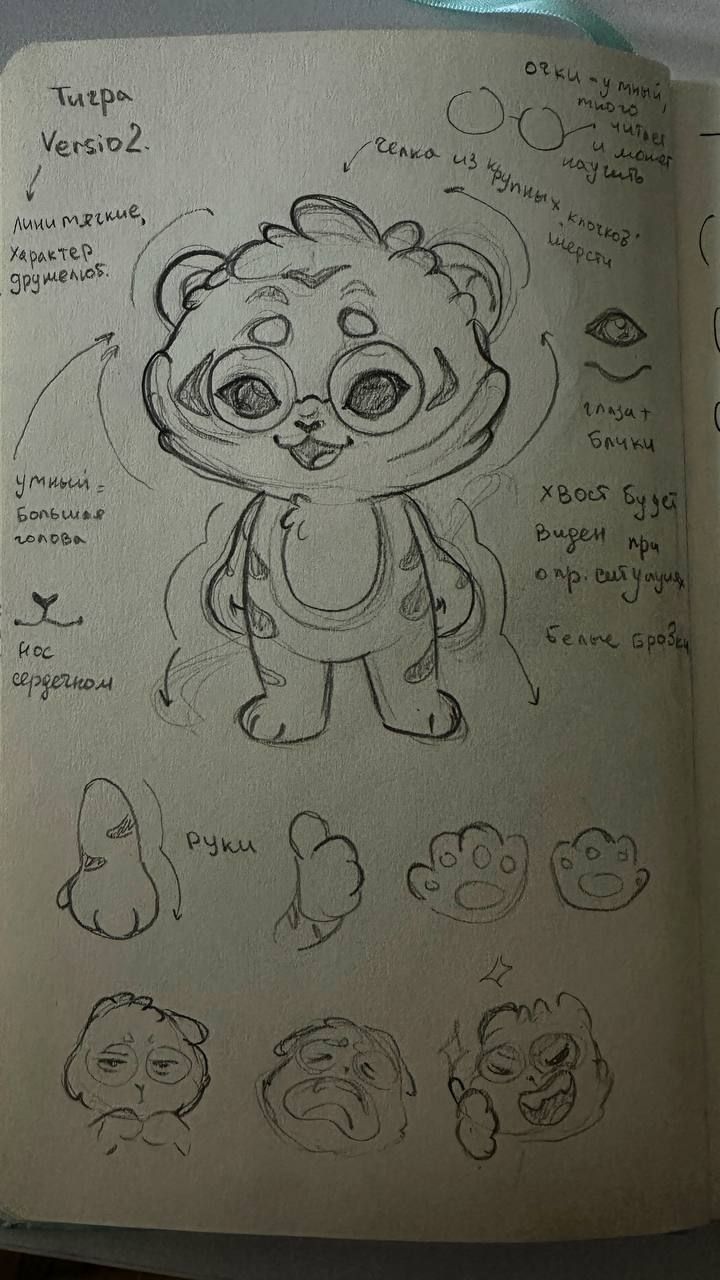 Тигра
Versio2.
Линии мягкие,
характер
дружелюб.
очки - умный,
много
читает
и может
научить
челка из крупных клочков
шерсти
глаза +
блики
умный =
большая
голова
хвост будет
виден при
опр. ситуациях
белые бровки
нос
сердечком
руки